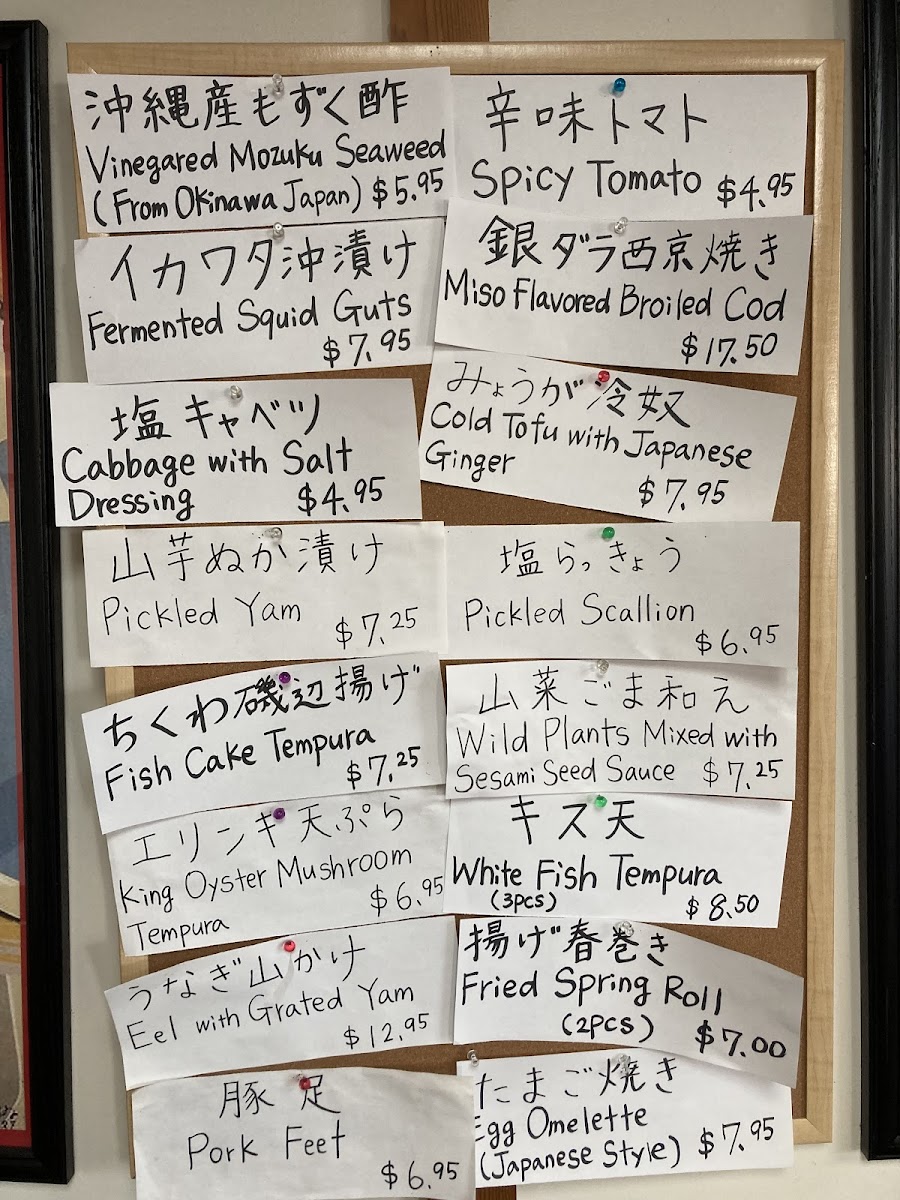 沖縄産もずく酢
Vinegared Mozuku Seaweed
(From Okinawa Japan) $5.95
イカワタ沖漬け
Fermented Squid Guts
$7.95
塩キャベツ
Cabbage with Salt
Dressing $4.95
山芋ぬか漬け
Pickled Yam
$7.25
ちくわ磯辺揚げ
Fish Cake Tempura
$7.25
エリンギ天ぷら
King Oyster Mushroom
Tempura $6.95
うなぎ山かけ
Eel with Grated Yam
$12.95
豚足
Pork Feet
$6.95
辛味トマト
Spicy Tomato $4.95
銀ダラ西京焼き
Miso Flavored Broiled Cod
$17.50
みょうが冷奴
Cold Tofu with Japanese
Ginger
$7.95
塩らっきょう
Pickled Scallion
$6.95
山菜ごま和え
Wild Plants Mixed with
Sesami Seed Sauce $7.25
キス天
White Fish Tempura
(3pcs) $8.50
揚げ春巻き
Fried Spring Roll
(2pcs) $7.00
たまご焼き
Egg Omelette
(Japanese Style) $7.95